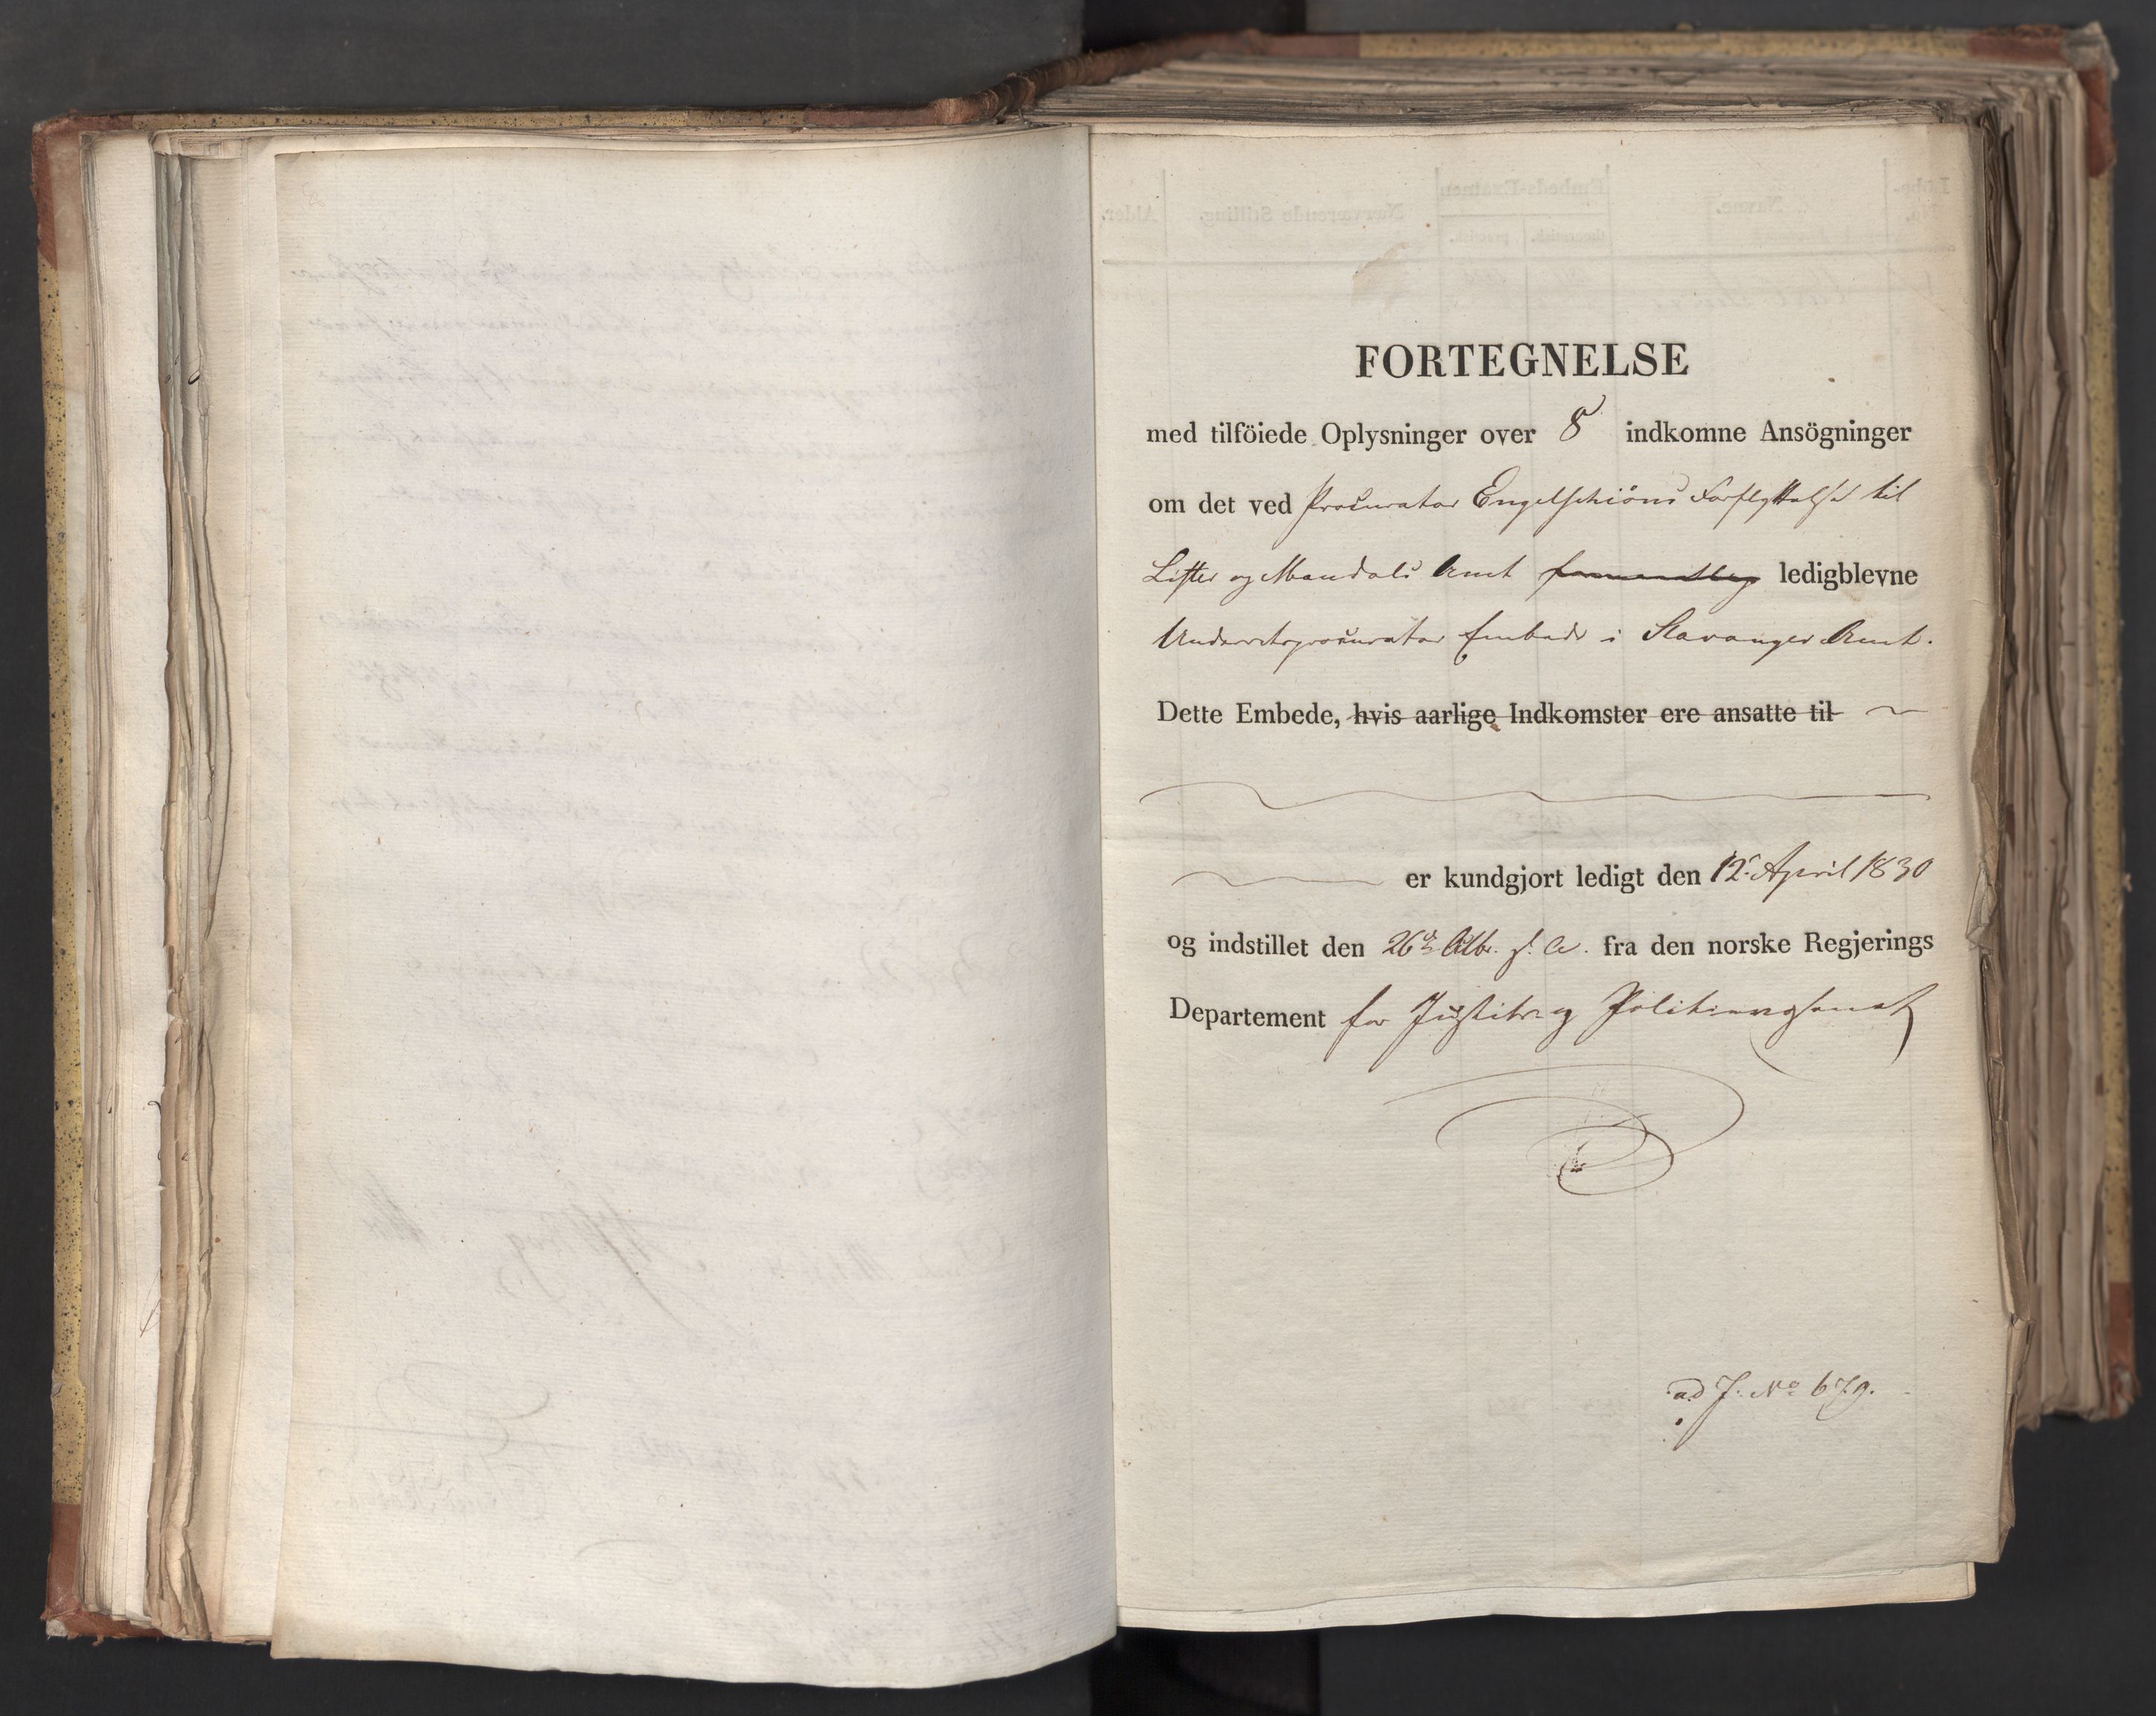 FORTEGNELSE
med tilföiede Oplysninger over 8 indkomne Ansögninger
om det ved Procurator Engelschiöns Forflyttelse til
Lister og Mandals Amt ledigblevne
Underretsprocurator Embede i Stavanger Amt.
Dette Embede, hvis aarlige Indkomster ere ansatte til
er kundgjort ledigt den 12 April 1830
og indstillet den 26de s. A. fra den norske Regjerings
Departement for Justits- og Politievæsenet
ad J. No 679.